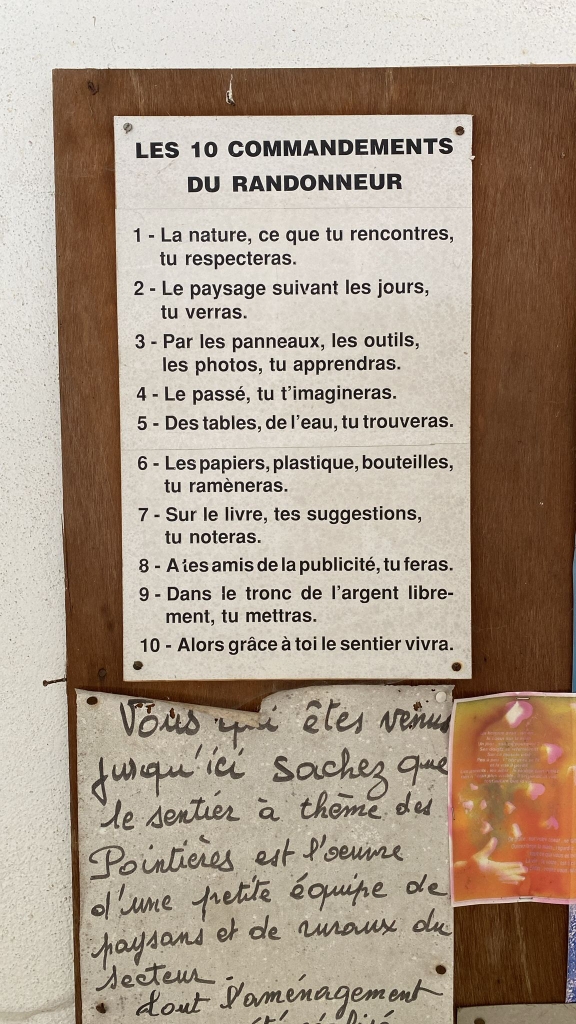 LES 10 COMMANDEMENTS
DU RANDONNEUR
1 - La nature, ce que tu rencontres,
tu respecteras.
2 - Le paysage suivant les jours,
tu verras.
3 - Par les panneaux, les outils,
les photos, tu apprendras.
4 - Le passé, tu t'imagineras.
5 - Des tables, de l'eau, tu trouveras.
6 - Les papiers, plastique, bouteilles,
tu ramèneras.
7 - Sur le livre, tes suggestions,
tu noteras.
8 - A tes amis de la publicité, tu feras.
9 - Dans le tronc de l'argent libre-
ment, tu mettras.
10 - Alors grâce à toi le sentier vivra.
Vous qui êtes venus
jusqu'ici sachez que
le sentier à thème des
Pointières est l'oeuvre
d'une petite équipe de
paysans et de ruraux du
secteur
dont l'aménagement